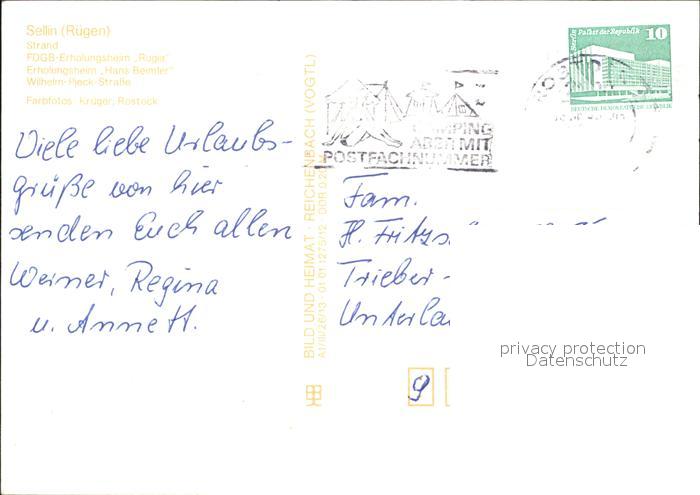 Sellin (Rügen)
Strand
FDGB-Erholungsheim „Rugia"
Erholungsheim „Hans Beimler"
Wilhelm-Pieck-Straße
Farbfotos: Krüger, Rostock
Viele liebe Urlaubs-
grüße von hier
senden Euch allen
Werner, Regina
u. Annett.
BILD UND HEIMAT · REICHENBACH (VOGTL)
A1/III/26/13 · 01 01 1275/12
CAMPING
ABER MIT
POSTFACHNUMMER
Palast der Republik
10
DEUTSCHE DEMOKRATISCHE REPUBLIK
Fam.
H. Fritzs
Trieber-
Unterla
9
privacy protection
Datenschutz